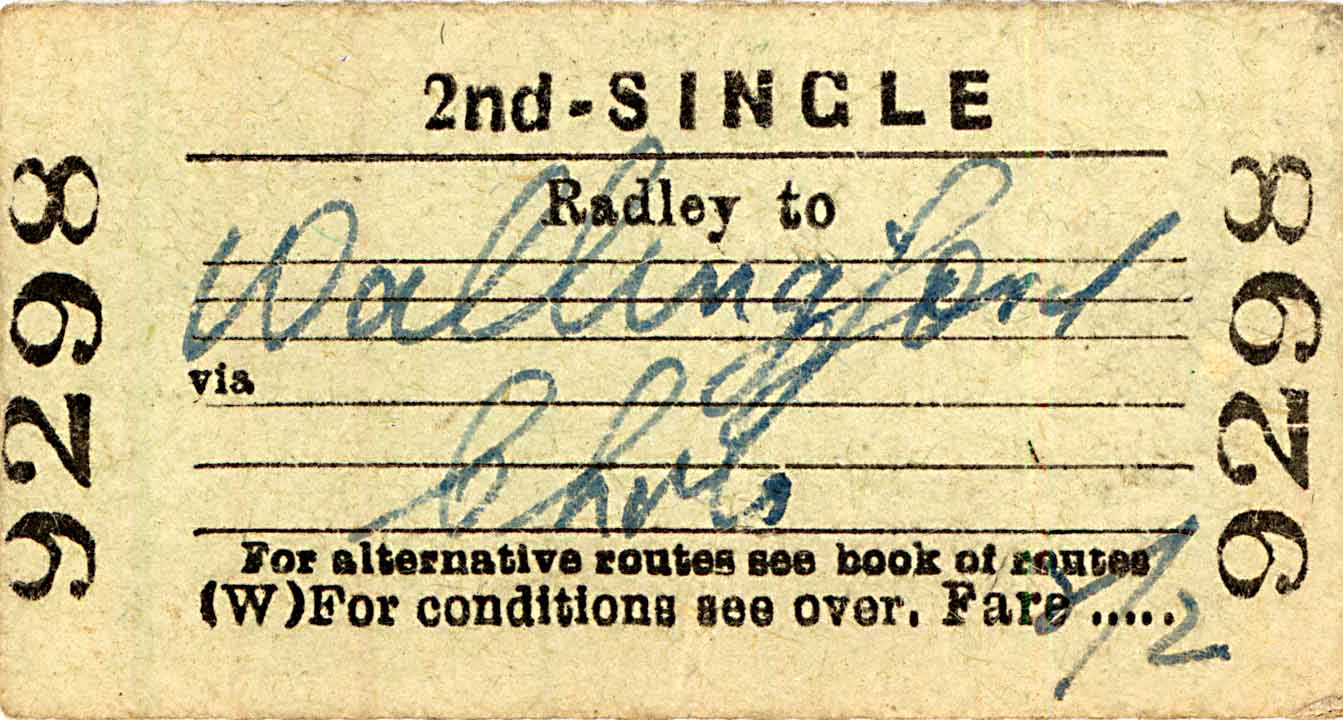 2nd-SINGLE
Radley to
Wallingford
via
Chols
For alternative routes see book of routes
(W)For conditions see over. Fare .....
9298
9298